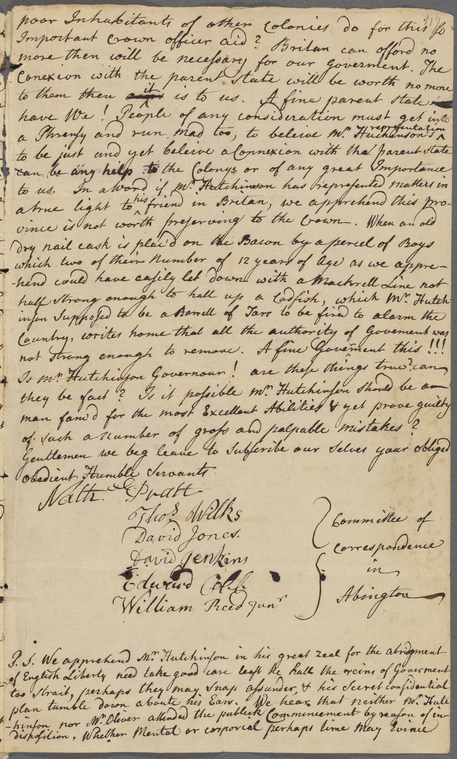 poor Inhabitants of other Colonies do for this so
Important crown officer aid? Britan can afford no
more then will be necessary for our goverment. The
Conexion with the parent State will be worth no more
to them then it is to us. A fine parent state
have We! People of any consideration must get into
a Phrensy and run mad too, to beleive Mr. Hutchinson representation
to be just and yet beleive a Connexion with the parent State
can be any help to the Colonys or of any great Importance
to us. In a word if Mr. Hutchinson has represented matters in
a true light to his friend in Britan, we apprehend this pro-
vince is not worth preserving to the Crown. When an old
Dry nail cask is plac'd on the Bacon by a percel of Boys
which two of their Number of 12 years of Age as we appre-
hend could have easily let down with a Mackrell Line not
half Strong enough to hall up a Codfish, which Mr. Hutch-
inson Supposed to be a Barrell of Tarr to be fired to alarm the
Country, writes home that all the authority of Goverment was
not strong enough to remove. A fine Goverment this!!!
Is Mr. Hutchinson Governour! are these things true? can
they be fact? Is it possible Mr. Hutchinson should be a
man fam'd for the most Excellent Abilities & yet prove guilty
of such a number of gross and palpable mistakes?
Gentlemen we beg leave to Subscribe our Selves your Obliged
Obedient Humble Servants
Nathl. Pratt
Thos. Wilks
David Jones.
David Jenkins
Edward Cobb
William Reed Junr
Committee of
Correspondence
in
Abington
P.S. We apprehend Mr. Hutchinson in his great zeal for the abridgment
of English Liberty need take good care least He hall the reins of Goverment
too Strait, perhaps they may snap assunder, & his Secret confidential
plan tumble down aboute his Ears. We hear that neither Mr. Hutc
hinson nor Mr. Oliver attended the publick Commencement by reason of in
disposition, Whether Mental or corporial perhaps time may Evince